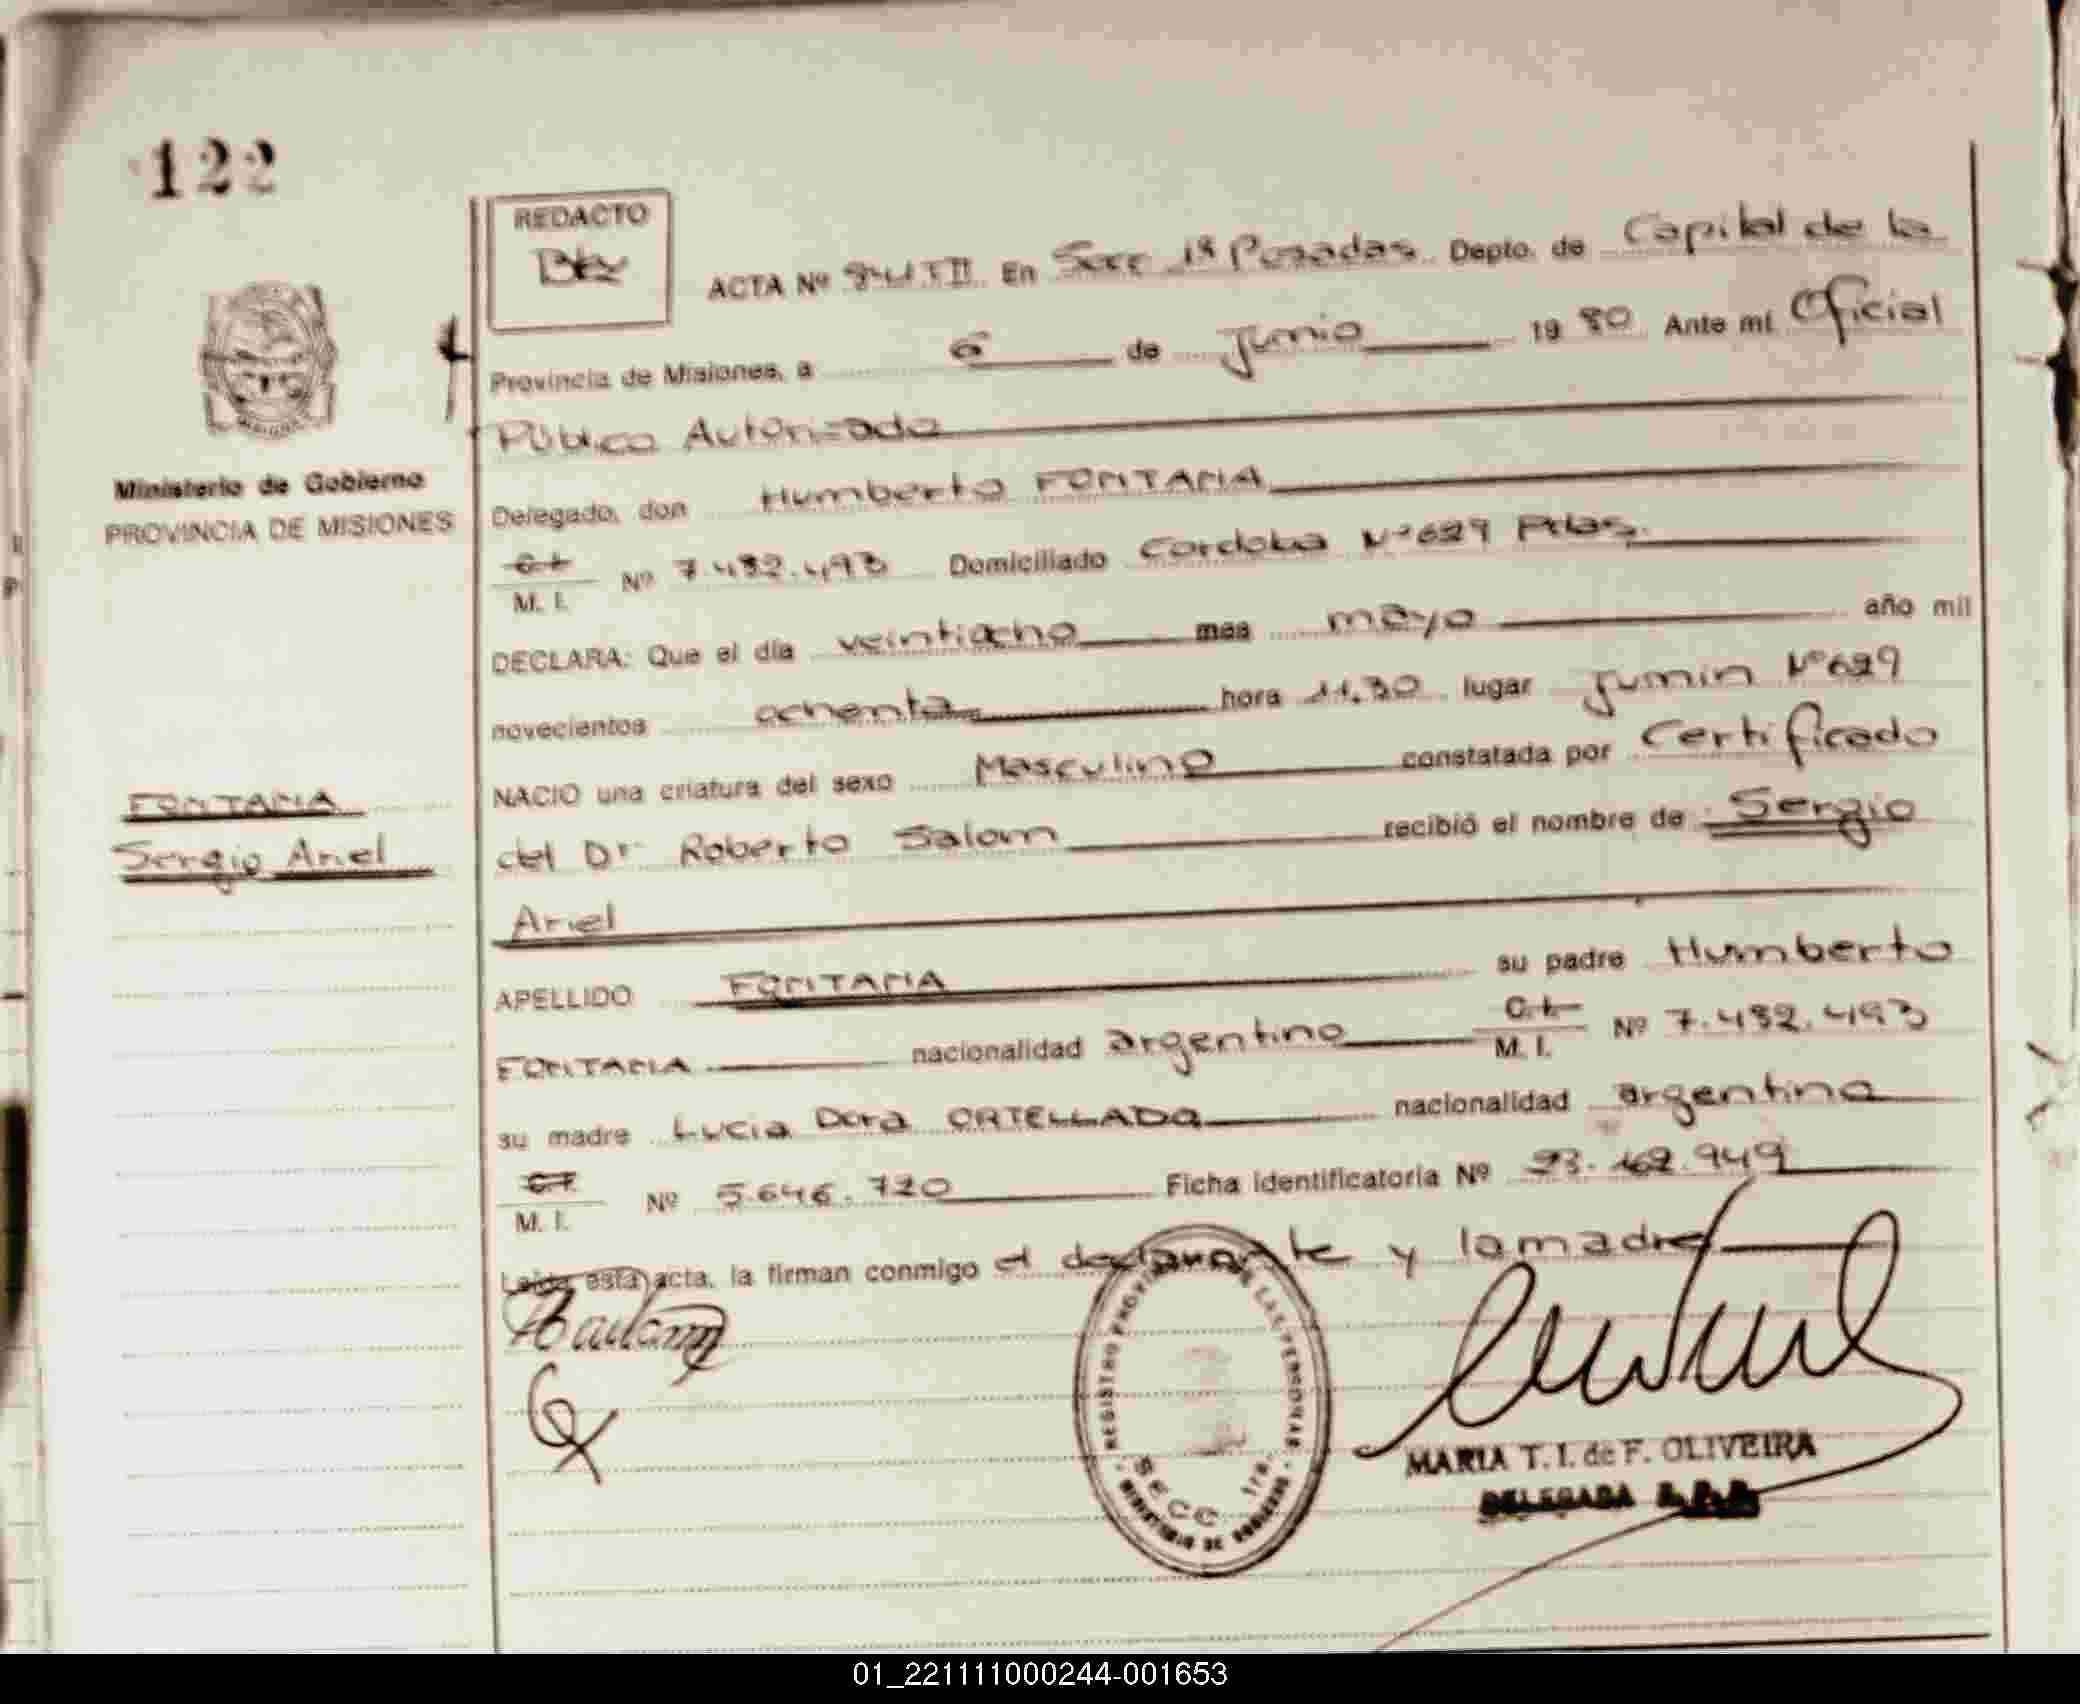 122
REDACTO
ACTA Nº En Secc 1ª Posadas. Depto. de Capital de la
Provincia de Misiones, a 6 de Junio 19 80 Ante mí Oficial
Público Autorizado
Ministerio de Gobierno
PROVINCIA DE MISIONES
Delegado, don Humberto FONTANA
C. I.
M. I. Nº 7.432.493 Domiciliado Cordoba Nº 629 Pdas.
DECLARA: Que el día veintiocho mes mayo año mil
novecientos ochenta hora 11.30 lugar Junin Nº 629
NACIO una criatura del sexo Masculino constatada por Certificado
FONTANA
Sergio Ariel
del Dr Roberto Salom recibió el nombre de Sergio
Ariel
APELLIDO FONTANA su padre Humberto
FONTANA nacionalidad argentino C. I.
M. I. Nº 7.432.493
su madre Lucia Dora ORTELLADO nacionalidad argentina
M. I. Nº 5.646.720 Ficha identificatoria Nº 23.162.949
Leída esta acta, la firman conmigo el declarante y la madre
REGISTRO DE LAS PERSONAS
SECC. 1ra.
MINISTERIO DE GOBIERNO
MARIA T. I. de F. OLIVEIRA
DELEGADA R.P.P.
01_221111000244-001653